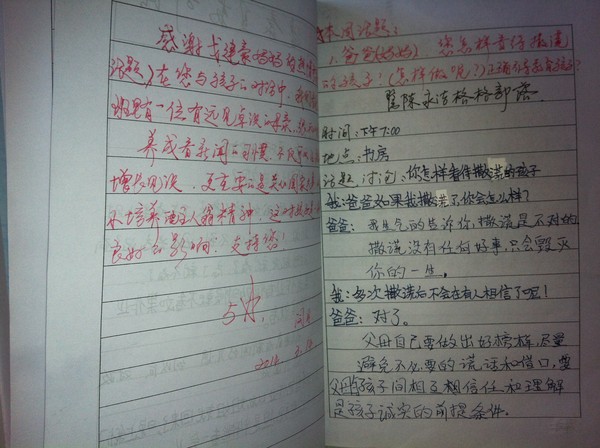 感谢戈建豪妈妈的
话题）在您与孩子的对话中，我们
班里有一位有远见卓识的家长，
养成看新闻的习惯，不仅可以
增长见识，更重要的是关心国家
从培养主人翁精神，这对孩子
良好的影响！支持您！
2014.
本周话题：
1.爸爸(妈妈) 您怎样看待撒谎
的孩子？(怎样做呢？)正确待教育孩子？
陈永洁格格部落
时间：下午7:00
地点：书房
话题讨论：你怎样看待撒谎的孩子
我：爸爸如果我撒谎了你会怎么样？
爸爸：我生气的告诉你，撒谎是不对的
撒谎没有任何好事，只会毁灭
你的一生。
我：多次撒谎后不会在有人相信了呢！
爸爸：对了。
父母自己要做出好榜样，尽量
避免不必要的谎话和借口，要
父母孩子间相互相信任和理解
是孩子诚实的前提条件。